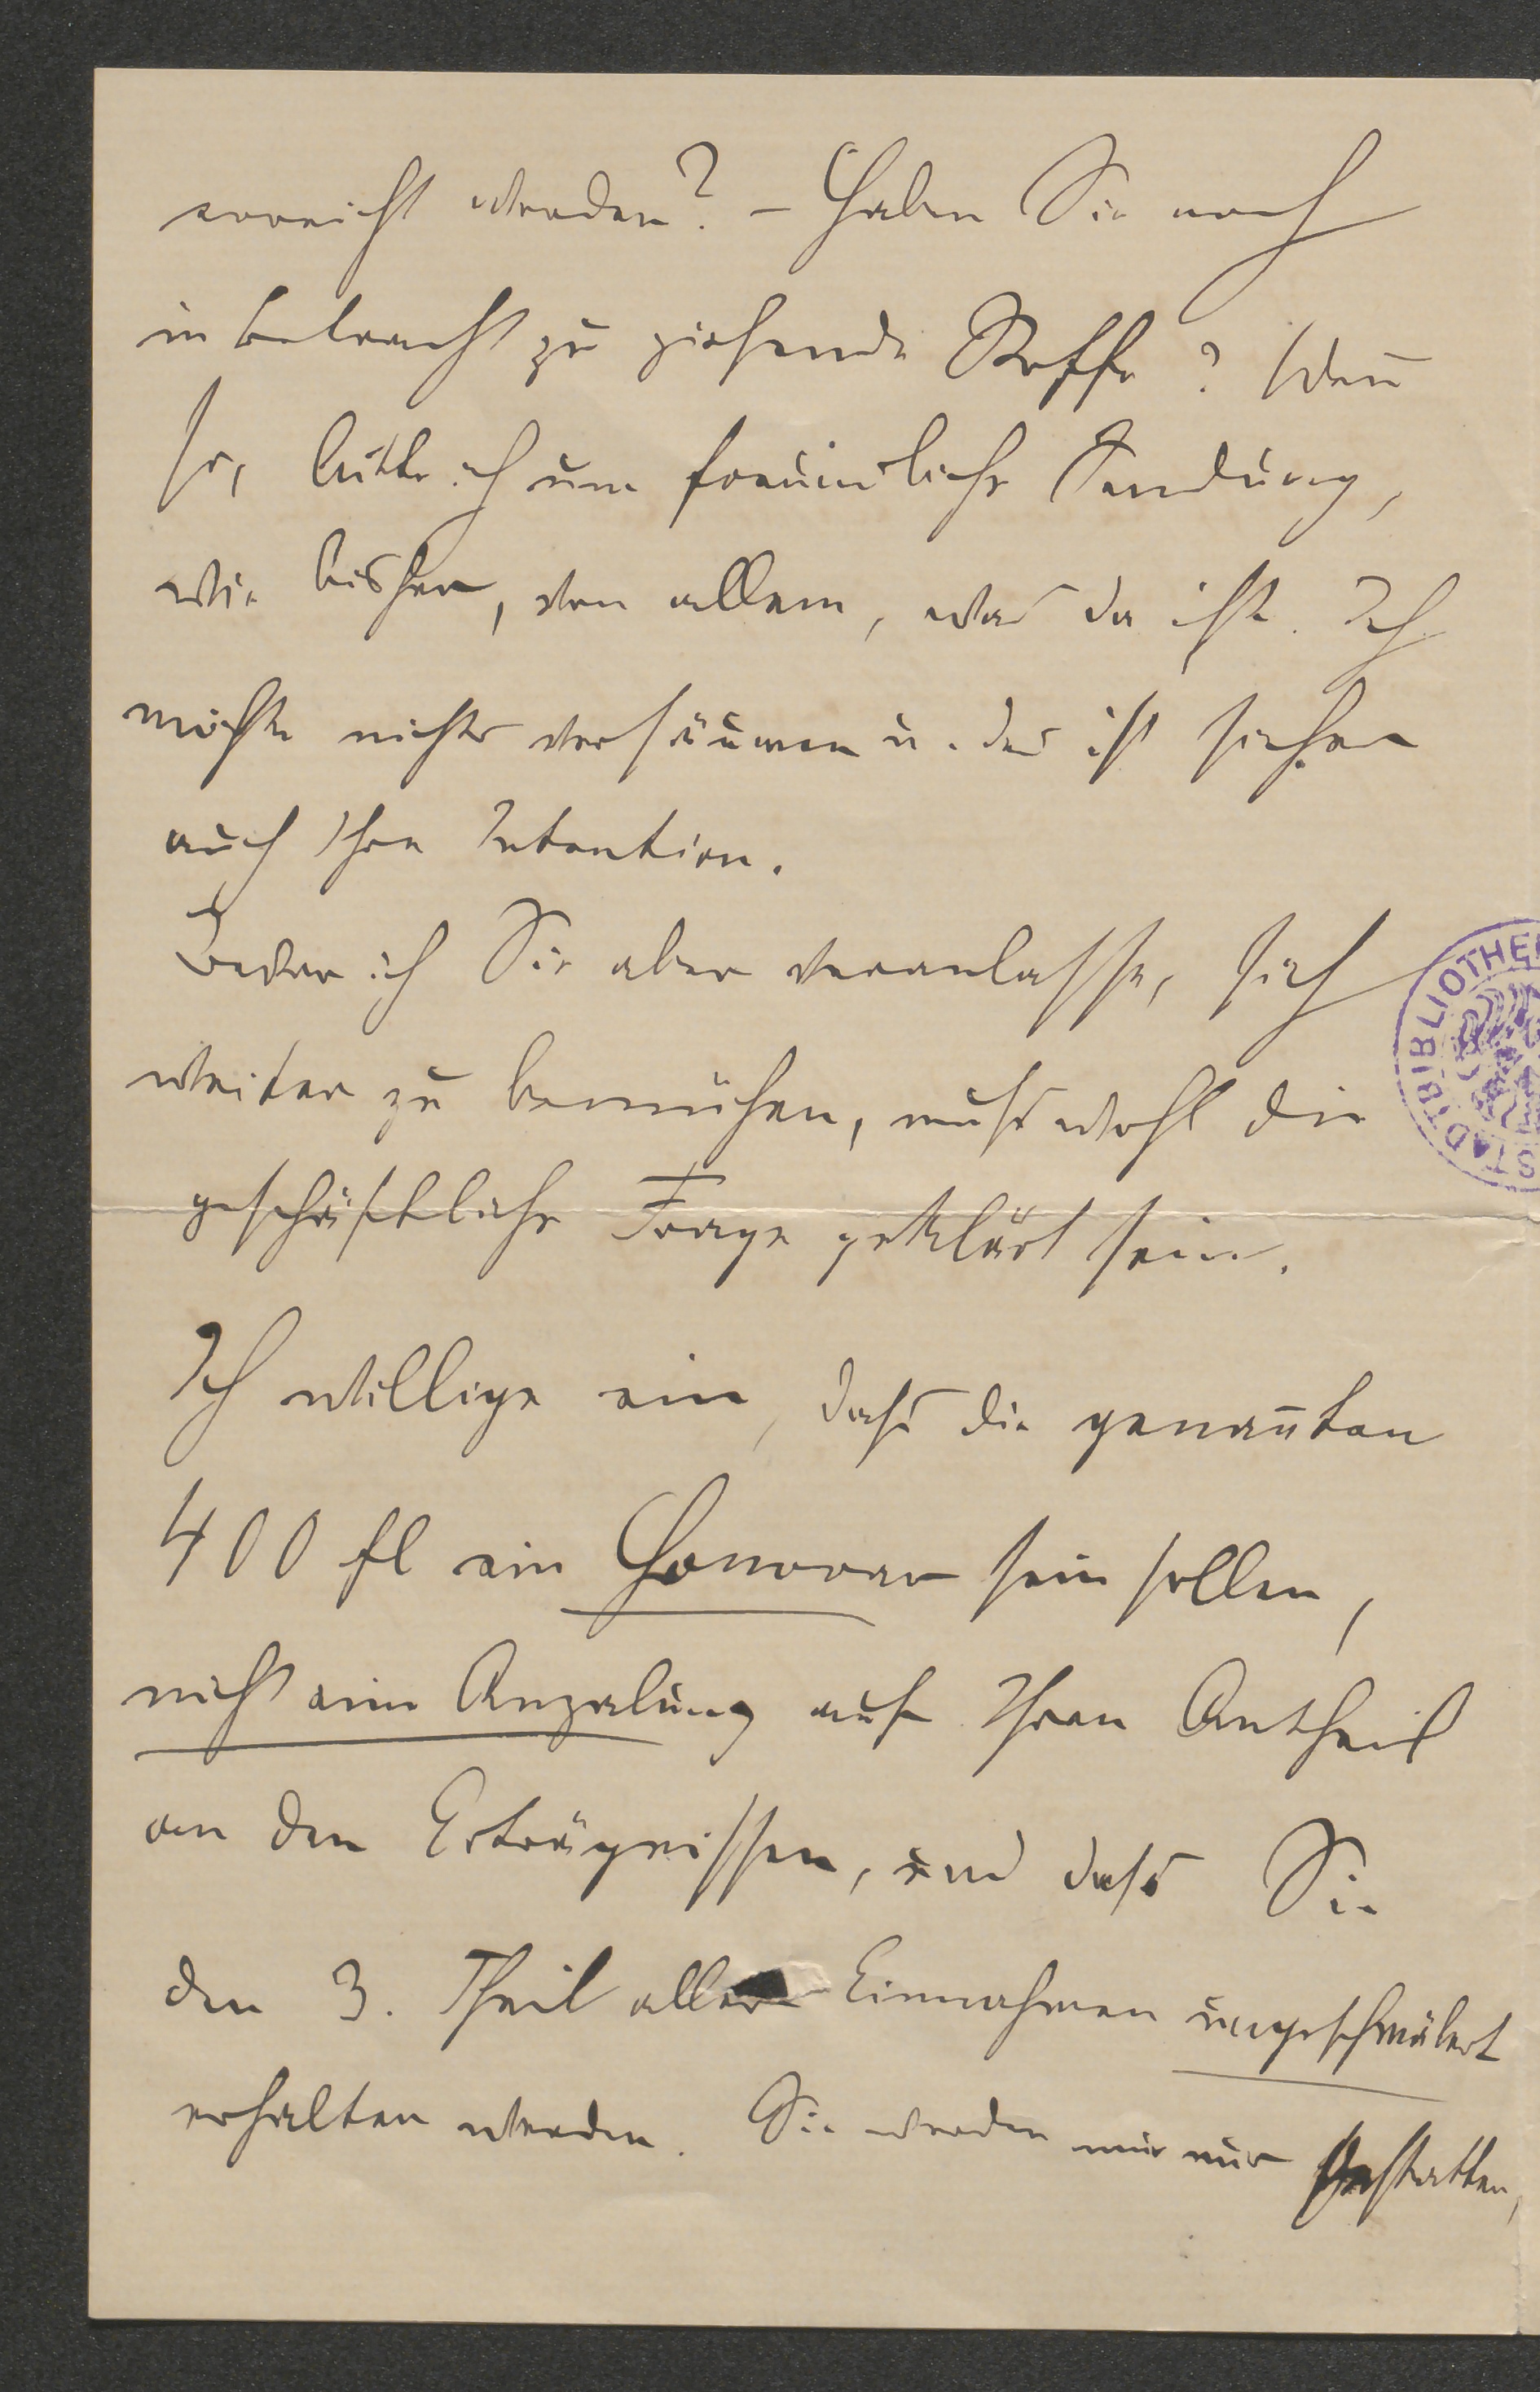 erreicht werden? – Haben Sie noch
in Betracht zu ziehende Stoffe? Wen̄
ja, bitte ich um freundliche Sendung,
wie bisher, von allem, was da ist. Ich
möchte nichts versäumen u. das ist sicher
auch Ihre Intention.
Bevor ich Sie aber veranlasse, sich
weiter zu bemühen, muß wohl die
geschäftliche Frage geklärt sein.
Ich willige ein, daß die genan̄ten
400 fl ein Honorar sein sollen,
nicht eine Anzalung auf Ihren Antheil
an den Erträgnissen, und daß Sie
den 3. Theil aller Einnahmen ungeschmälert
erhalten werden. Sie werden mir nur gestatten,
STADTBIBLIOTHE